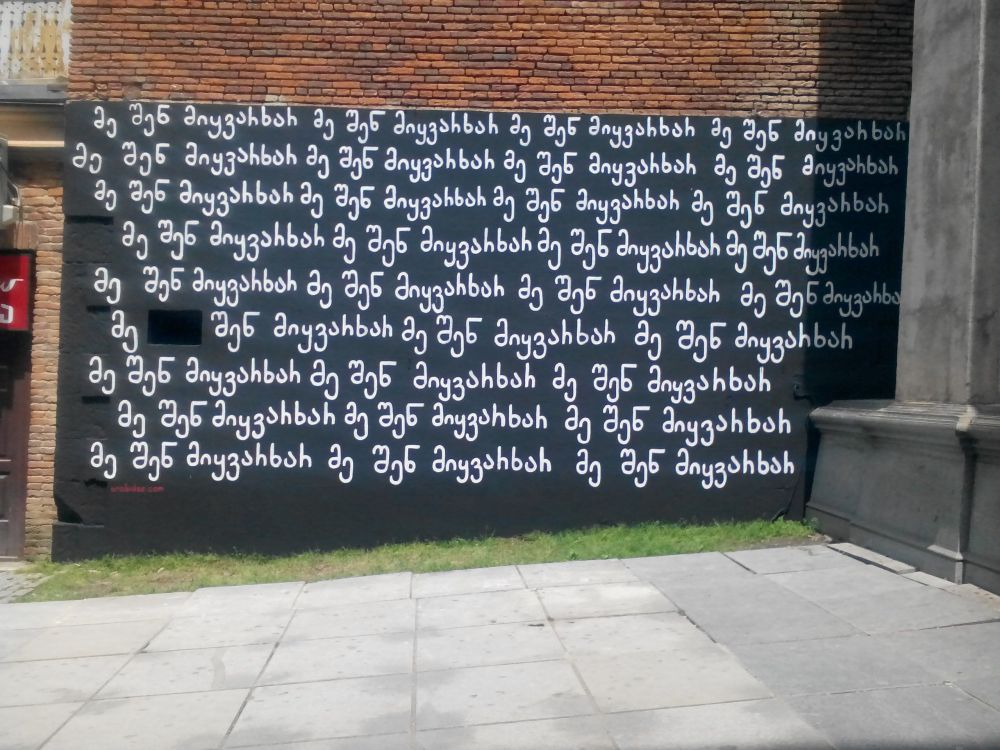 მე შენ მიყვარხარ მე შენ მიყვარხარ მე შენ მიყვარხარ მე შენ მიყვარხარ
მე შენ მიყვარხარ მე შენ მიყვარხარ მე შენ მიყვარხარ მე შენ მიყვარხარ
მე შენ მიყვარხარ მე შენ მიყვარხარ მე შენ მიყვარხარ მე შენ მიყვარხარ
მე შენ მიყვარხარ მე შენ მიყვარხარ მე შენ მიყვარხარ მე შენ მიყვარხარ
მე შენ მიყვარხარ მე შენ მიყვარხარ მე შენ მიყვარხარ მე შენ მიყვარხა
მე შენ მიყვარხარ მე შენ მიყვარხარ მე შენ მიყვარხარ
მე შენ მიყვარხარ მე შენ მიყვარხარ მე შენ მიყვარხარ
მე შენ მიყვარხარ მე შენ მიყვარხარ მე შენ მიყვარხარ
მე შენ მიყვარხარ მე შენ მიყვარხარ მე შენ მიყვარხარ